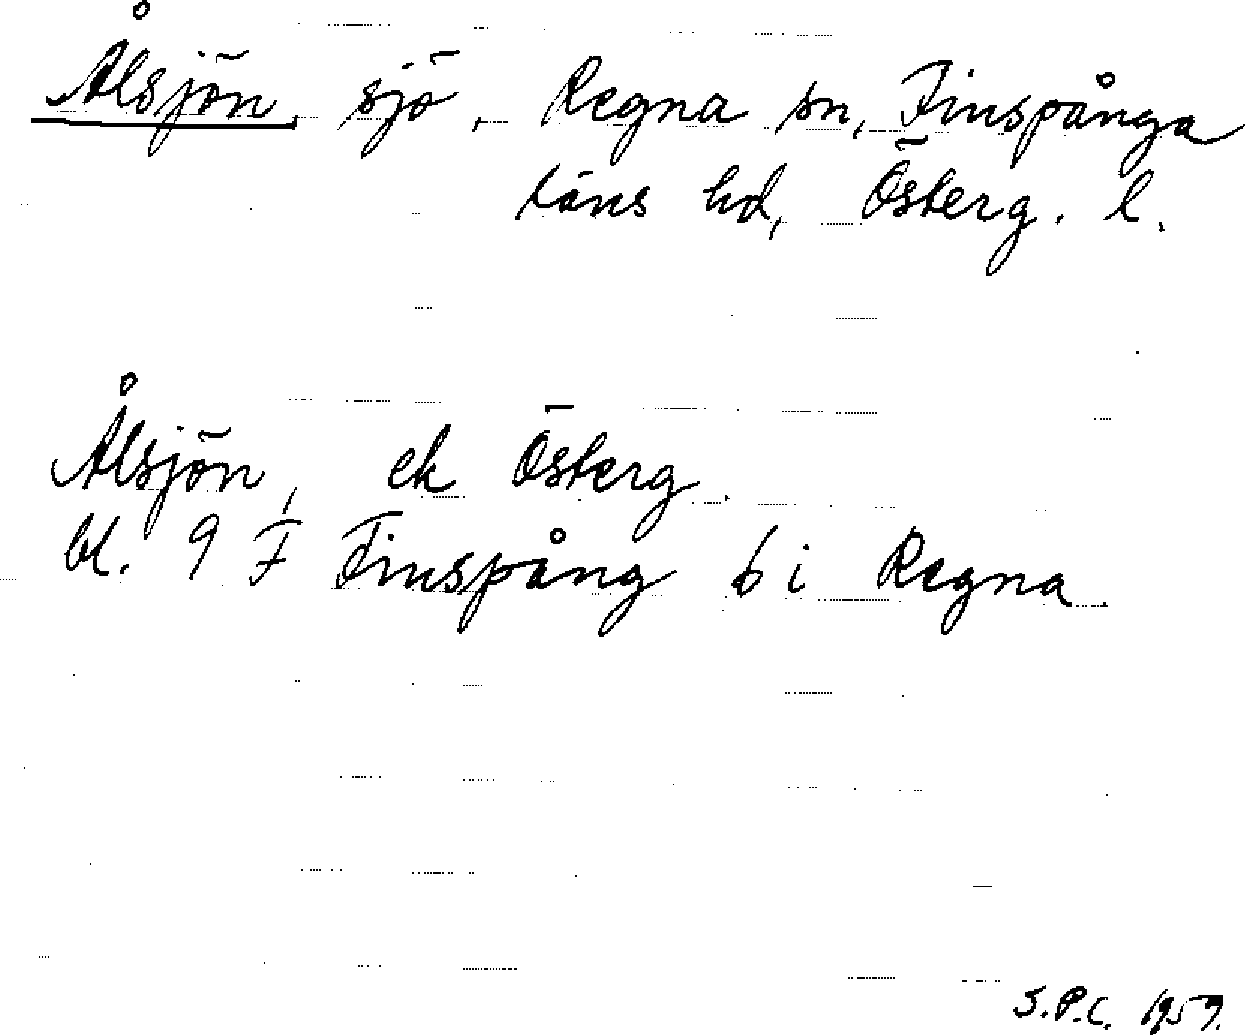 Ålsjön, sjö, Regna sn, Finspånga
läns hd, Österg. l.
Ålsjön, ek Österg.
bl. 9 F Finspång b i Regna
S.P.C. 1959.